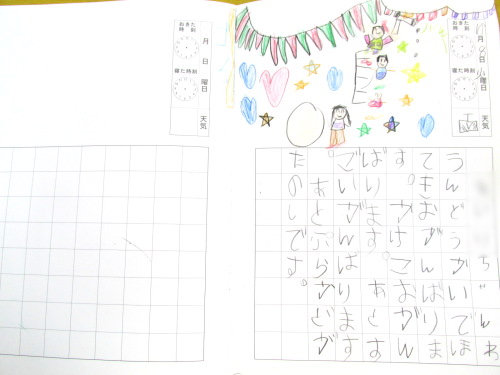 おきた時刻
月
日
曜日
寝た時刻
天気
おきた時刻
月
8日
曜日
寝た時刻
天気
わ
うんどうかいでほ
てきおがんばりま
す。かけこおがん
ばります。あとす
ごいがんばります
。あとぷらかどが
たのしです。